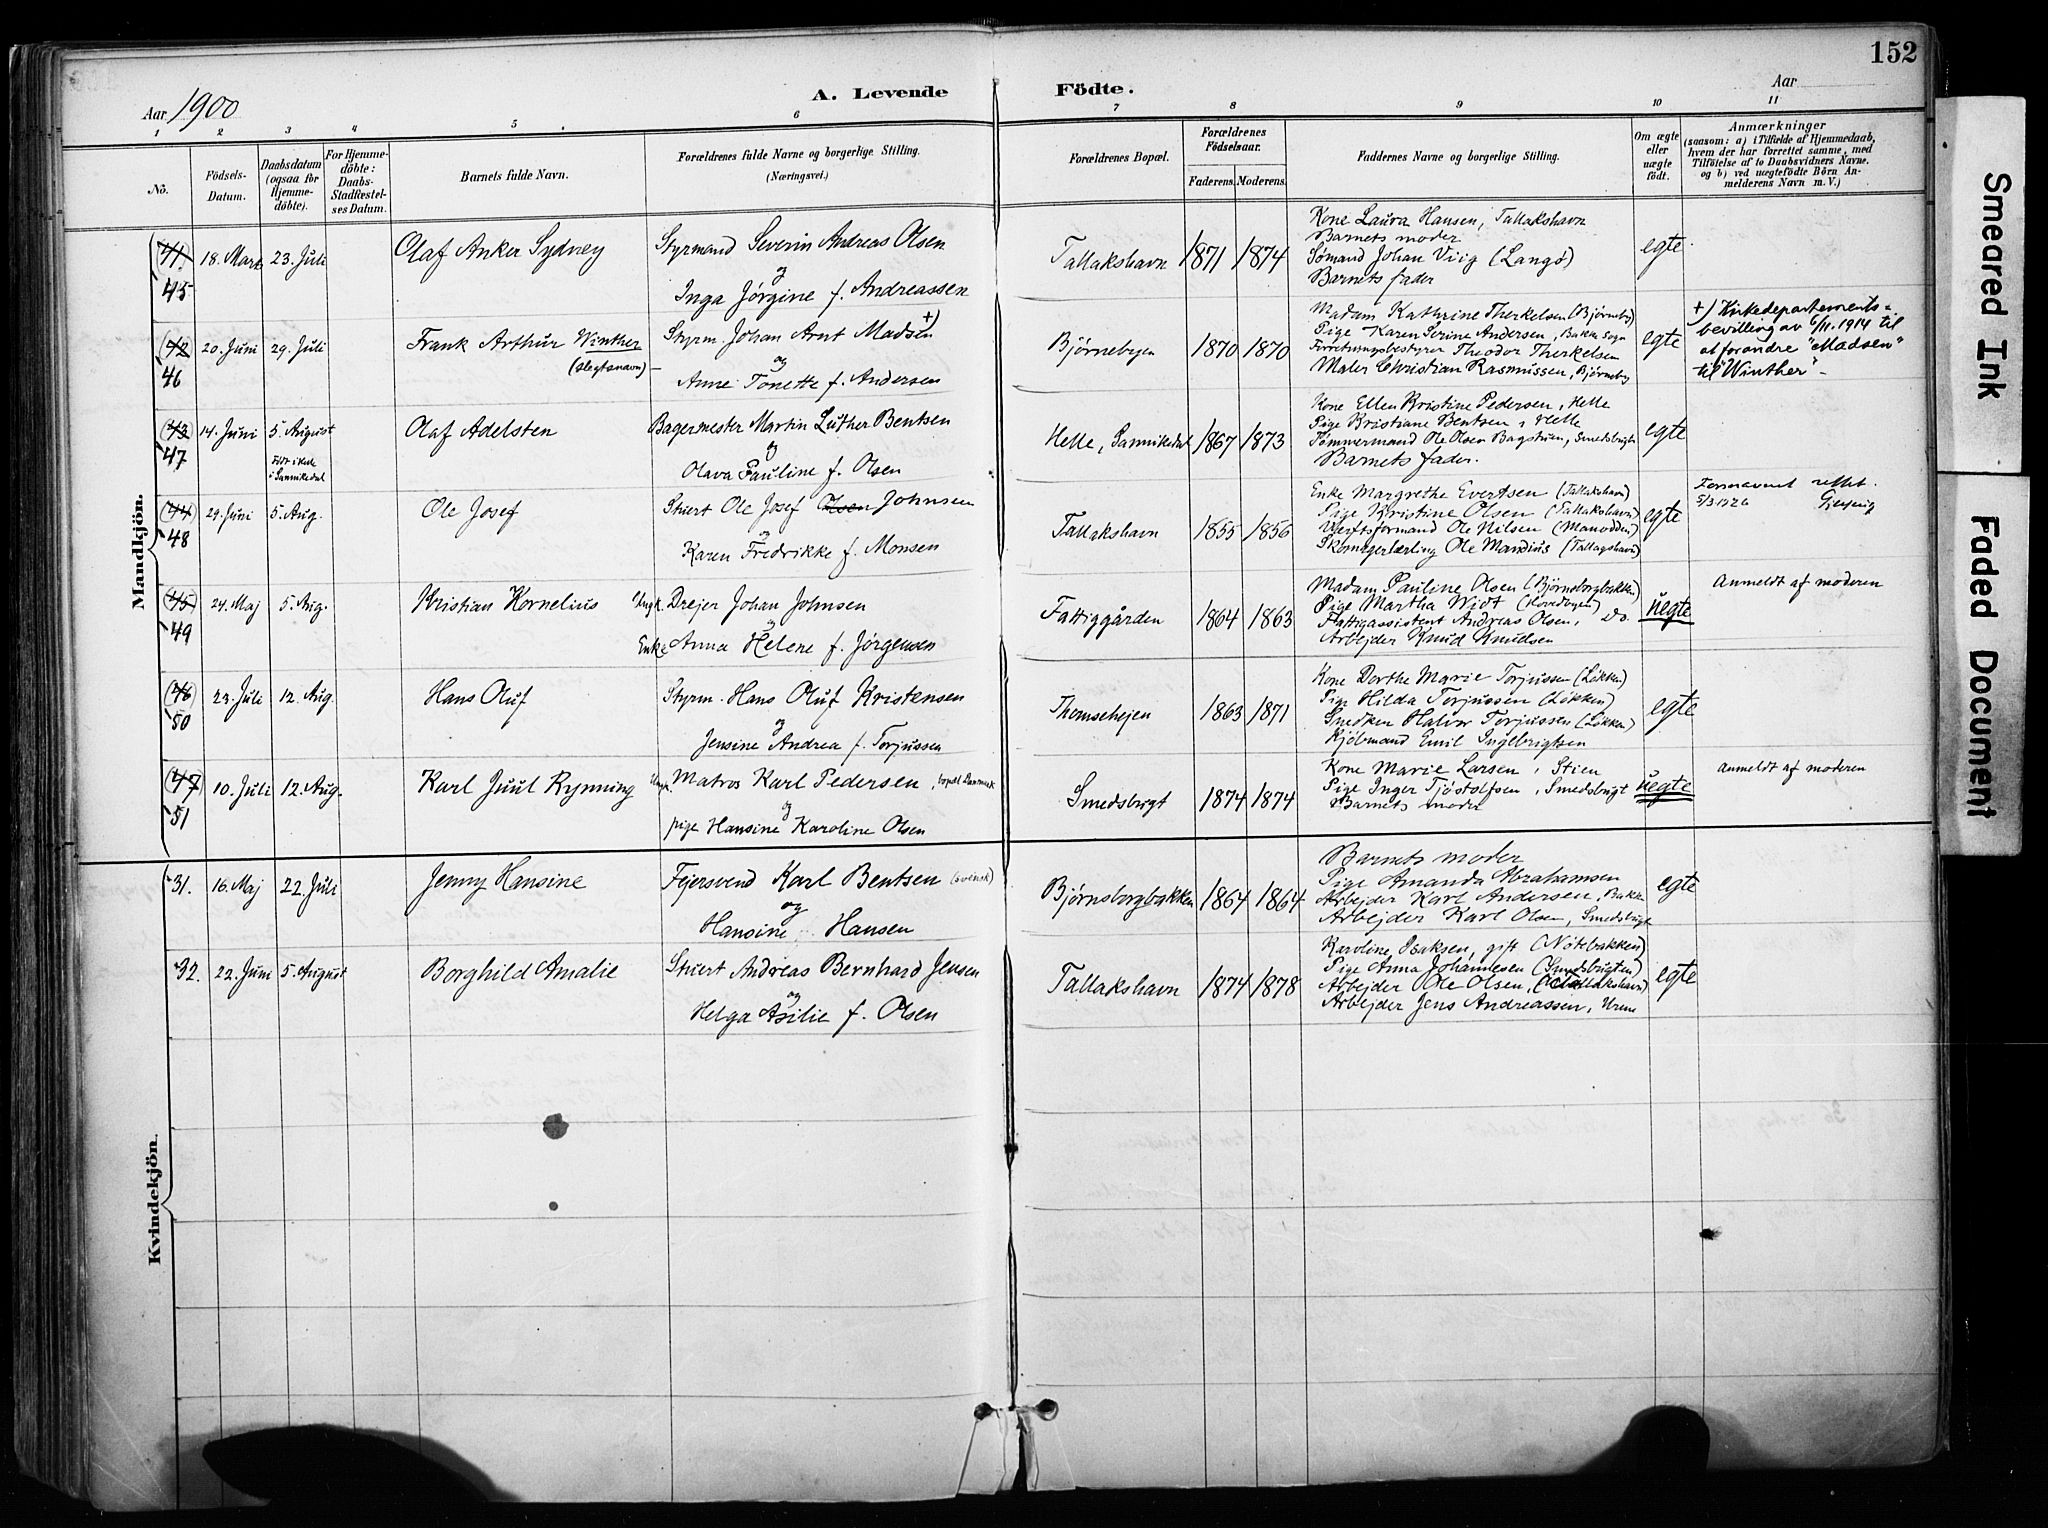 152
Aar 1900
A. Levende Födte.
Aar
1 2 3 4 5 6 7 8 9 10 11
No.
Födsels-Datum.
Daabsdatum (ogsaa for Hjemme-döbte).
For Hjemme-döbte: Daabs-Stadfæstel-ses Datum.
Barnets fulde Navn.
Forældrenes fulde Navne og borgerlige Stilling.
(Næringsvei.)
Forældrenes Bopæl.
Forældrenes Födselsaar.
Faderens. Moderens.
Faddernes Navne og borgerlige Stilling.
Om ægte eller uægte födt.
Anmærkninger
(saasom: a) i Tilfælde af Hjemmedaab, hvem der har forrettet samme, med Tilföielse af to Daabsvidners Navne. og b) ved uægtefödte Börn An-melderens Navn m. V.)
Mandkjön.
41. 45 18. Marts 23. Juli Olaf Anker Sydney
Styrmand Severin Andreas Olsen
og
Inga Jørgine f. Andreassen
Tallakshavn 1871 1874
Kone Laura Hansen, Tallakshavn
Barnets moder
Sømand Johan Viig (Langø)
Barnets fader
egte
42 46 20. Juni 29. Juli Frank Arthur Winther
(slegtsnavn)
Styrm. Johan Arnt Madsen +)
og
Anne Tonette f. Andersen
Bjørnebyen 1870 1870
Madam Kathrine Therkelsen (Bjørneby)
Pige Karen Serine Andersen, Bakke Sogn
Forretningsbestyrer Theodor Therkelsen
Maler Christian Rasmussen, Bjørneby
egte
+) Kirkedepartements-
bevilling av 6/11.1914 til
at forandre "Madsen"
til "Winther" -
43 47 14. Juni 5. August Olaf Adelsten
i Sannikedal
Bagermester Martin Luther Bentsen
og
Olava Pauline f. Olsen
Helle, Sannikedal 1867 1873
Kone Ellen Kristine Pedersen, Helle
Pige Kristiane Bentsen, Helle
Tømmermand Ole Olsen Smedsbugt
Barnets fader.
egte
44 48 29. Juni 5. Aug. Ole Josef
Stuert Ole Josef Olsen Johnsen
og
Karen Fredrikke f. Monsen
Tallakshavn 1855 1856
Enke Margrethe Evertsen (Tallakshavn)
Pige Kristine Olsen (Tallakshavn)
Verftsformand Ole Nilsen (Manodden)
Skomagerlærling Ole Mandius (Tallagshavn)
egte
rettet
5/3.1926
45 49 24. Maj 5. Aug. Kristian Kornelius
Ungk. Drejer Johan Johnsen
og
Enke Anna Helene f. Jørgensen
Fattiggården 1864 1863
Madam Pauline Olsen (Bjørnsborgbakken)
Pige Martha Widt
Fattigassistent Andreas Olsen, Do.
Arbejder Knud Knudsen
uegte
Anmeldt af moderen
46 50 23. Juli 12. Aug. Hans Oluf
Styrm. Hans Oluf Kristensen
og
Jensine Andrea f. Torjussen
Thomsehejen 1863 1871
Kone Dorthe Marie Torjussen (Løkken)
Pige Hilda Torjussen (Løkken)
Snedker Halvor Torjussen (Løkken)
Kjøbmand Emil Ingebrigtsen
egte
47 51 10. Juli 12. Aug. Karl Juul Rynning
Ungk. Matros Karl Pedersen, bopæl Danmark
og
pige Hansine Karoline Olsen
Smedsbugt 1874 1874
Kone Marie Larsen, Stien
Pige Inger Tjøstolfsen, Smedsbugt
Barnets moder
uegte
Anmeldt af moderen
Kvindekjön.
31. 16. Maj 22. Juli Jenny Hansine
Fejersvend Karl Bentsen (svensk)
og
Hansine Hansen
Bjørnsborgbakken 1864 1864
Barnets moder
Pige Amanda Abrahamsen
Arbejder Karl Andersen, Bakke
Arbejder Karl Olsen, Smedsbugt
egte
32. 22. Juni 5. August Borghild Amalie
Stuert Andreas Bernhard Jensen
og
Helga Asilie f. Olsen
Tallakshavn 1874 1878
Karoline Isaksen, gift (Nötebakken)
Pige Anna Johannesen (Smedsbugten)
Arbejder Ole Olsen, (Tallakshavn)
Arbejder Jens Andreassen, Urene
egte
Smeared Ink
Faded Document